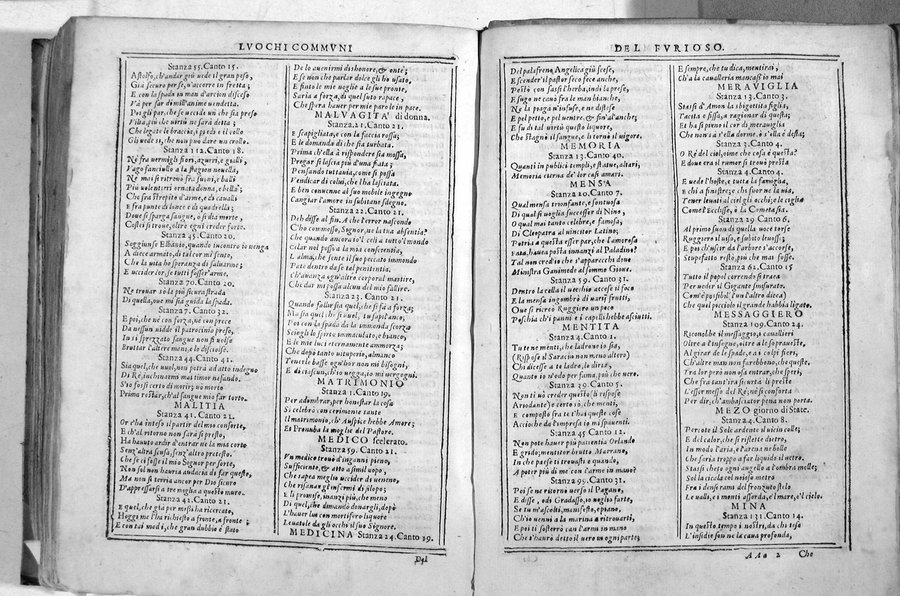 LVOCHI COMMVNI
Stanza 55. Canto 15.
Astolfo, ch'andar giù uede il gran peso,
Già securo perse, n'accorre in fretta;
E con la spada in man d'arcion disceso
Va per far di mill'anime uendetta.
Poi gli par, che se uccide un che sia preso
Viltà, più che uirtù ne sarà detta;
Che legate le braccia, i piedi e il collo
Gli uede sì, che non può dare un crollo.
Stanza 112. Canto 18.
Nè fra uermigli fiori, azurri, e gialli,
Vago fanciullo a la stagion nouella,
Nè mai si ritrouò fra suoni, e balli
Più uolentieri ornata donna, e bella;
Che fra strepito d'arme, e di caualli
E fra punte di lance e di quadrella;
Doue si sparga sangue, o si dia morte,
Costei si troue, oltre ogni creder forte.
Stanza 45. Canto 20.
Soggiunse Elbanio, quando incontro io uenga
A diece armato, di tal cor mi sento,
Che la uita ho speranza di saluarme;
E uccider lor, se tutti fosser'arme.
Stanza 70. Canto 20.
Nè trouar sò la più sicura strada
Di quella, oue mi sia guida la spada.
Stanza 7. Canto 32.
E poi, che nè con forza, nè con prece
Da nessun uidde il patrocinio preso,
In si sprezzato sangue non si uolse
Bruttar l'altere mani, e lo disciolse.
Stanza 44. Canto 41.
Sia quel, che uuol, non potrà ad atto indegno
Di Rè, inchinarmi mai timor nefando.
S'io fossi certo di morir; uò morto
Prima restar, ch'al sangue mio far torto.
MALITIA
Stanza 41. Canto 21.
Or c'hà inteso il partir del mio consorte,
E ch'al ritorno non sarà si presto,
Hà hauuto ardir d'entrar ne la mia corte
Senz'altra scusa, senz'altro pretesto.
Che se ci fosse il mio Signor per sorte,
Non sol non hauria audacia di far questo,
Ma non si terria ancor per Dio sicuro
D'appressarsi a tre miglia a questo muro.
Stanza 42. Canto 21.
E quel, che già per messi hà ricercato,
Hoggi me l'hà richiesto a fronte, a fronte;
E con tai modi, che gran dubbio è stato
De lo auenirmi dishonore, & onte;
E se non che parlar dolce gli hò usato,
E finto le mie uoglie a le sue pronte,
Saria a forza, di quel suto rapace,
Che spera hauer per mie parole in pace.
MALVAGITA' di donna.
Stanza. 21. Canto 21.
E scapigliata, e con la faccia rossa;
E le domanda di che sia turbata.
Prima ch'ella à rispondere sia mossa,
Pregar si lascia più d'una fiata;
Pensando tuttauia, come si possa
Vendicar di colui, che l'ha lasciata.
E ben conuenne al suo mobile ingegno
Cangiar l'amore in subitano sdegno.
Stanza 22. Canto 21.
Deh disse al fin, A che l'error nascondo
C'hò commosso, Signor, ne la tua absentia?
Che quando ancora io'l celi a tutto'l mondo
Celar nol posso a la mia conscientia.
L'alma, che sente il suo peccato immondo
Pate dentro da se tal penitentia,
Ch'auanza ogn'altro corporal martire,
Che dar mi possa alcun del mio fallire.
Stanza 23. Canto 21.
Quando fallir sia quel, che si fà a forza;
Ma sia quel, che si uuol, tu sapilanco;
Poi con la spada da la immonda scorza
Sciogli lo spirto immaculato, e bianco,
E le mie luci eternamente ammorza;
Che dopò tanto uituperio, almanco
Tenerle basse ogn'hor non mi bisogni,
E di ciascun, ch'io uegga, io mi uergogni.
MATRIMONIO
Stanza 1. Canto 19.
Per adombrar, per honestar la cosa
Si celebrò con cerimonie sante
Il matrimonio, ch'Auspice hebbe Amore;
Et Pronuba la moglie del Pastore.
MEDICO scelerato.
Stanza 59. Canto 21.
Vn medico trouò d'inganni pieno,
Sufficiente, & atto a simil uopo,
Che sapea meglio uccider di ueneno,
Che risanar gl'infermi di silopo;
E li promise, inanzi più, che meno
Di quel, che dimandò donargli, dopò
L'hauer lui con mortifero liquore
Leuatole da gli occhi il suo Signore.
MEDICINA Stanza 24. Canto 19.
Dal
DEL FVRIOSO.
Del palafreno Angelica giù scese,
E scender il pastor seco fece anche,
Pestò con sassi l'herba, indi la prese,
E sugo ne cauò fra le man bianche,
Ne la piaga n'infuse, e ne distese
E pel petto, e pel uentre, & fin'al'anche;
E fu di tal uirtù questo liquore,
Che stagnò il sangue, e li tornò il uigore.
MEMORIA
Stanza 13. Canto 40.
Quanti in publici tempii, e statue, altari,
Memoria eterna de' lor casi amari.
MENSA
Stanza 20. Canto 7.
Qual mensa trionfante, e sontuosa
Di qual si uoglia successor di Nino,
O qual mai tanto celebre, e famosa,
Di Cleopatra al uincitor Latino;
Potria a questa esser par, che l'amorosa
Fata, hauea posta innanzi al Paladino?
Tal non cred'io che s'apparecchi doue
Ministra Ganimede al sommo Gioue.
Stanza 59. Canto 31.
Dentro la cella il uecchio accese il foco
E la mensa ingombrò di uarij frutti,
Oue si ricreò Ruggiero un poco
Poscia ch'i panni e i capelli hebbe asciutti.
MENTITA
Stanza 24. Canto 2.
Tu te ne menti, che ladrone io sia,
(Rispose il Saracin non meno altero)
Chi dicesse a te ladro, lo diria,
Quanto io n'odo per fama, più che uero.
Stanza 39. Canto 5.
Non ti uò creder questo; li rispose
Ariodante; e certo sò, che menti,
E composto fra te t'hai queste cose
Acciochè da l'impresa io mi spauenti.
Stanza 45 Canto 12.
Non pote hauer più patientia Orlando
E gridò; mentitor brutto Marrano,
In che paese ti trouasti e quando,
A poter più di me con l'arme in mano?
Stanza 95. Canto 31.
Poi se ne ritorno uerso il Pagano,
E disse, odi Gradasso, io uoglio farte,
Se tu m'ascolti, manifesto, e piano,
Ch'io uenni a la marina a ritrouarti,
E poi ti sosterrò con l'armi in mano
Che t'haurò detto il uero in ogni parte;
E sempre, che tu dica, mentirai,
Ch'a la caualleria mancassi io mai
MERAVIGLIA
Stanza 13. Canto 3.
Stassi d'Amon la sbigottita figlia,
Tacita e fissa, a ragionar di questa;
Et ha si pieno il cor di merauiglia
Che non sà s'ella dorme, ò s'ella è desta;
Stanza 3. Canto 4.
O Rè del ciel, oime che cosa è questa?
E doue era il rumor si trouò presta
Stanza 4. Canto 4.
E uede l'hoste, e tutta la famiglia,
E chi a finestre, e chi fuor ne la uia,
Tener leuati al ciel gli occhi, e le ciglia
Come l'Ecclisse, ò la Cometa sia.
Stanza 29 Canto 6.
Al primo suon di quella uoce torse
Ruggiero il uiso, e subito leuossi;
E poi ch'uscir da l'arbore s'accorse,
Stupefatto restò, più che mai fosse.
Stanza 62. Canto 15
Tutto il popol correndo si trahea
Per ueder il Gigante smisurato.
Com'è possibil (l'un l'altro dicea)
Che quel picciolo il grande habbia ligato.
MESSAGGIERO
Stanza 109. Canto 24.
Riconobbe il messaggio, i cauallieri
Oltre a l'insegne, oltre a le soprauesti,
Al girar de le spade, e a i colpi fieri,
Ch'altre man non farebbono, che queste,
Tra lor però non osa entrar, che speri,
Che fra tant'ira sicurtà li preste
L'esser messo del Rè; nè si conforta
Per dir, ch'ambasciator pena non porta.
MEZO giorno di State.
Stanza 20. Canto 8.
Percote il Sole ardente il uicin colle;
E del calor, che si riflette dietro,
In modo l'aria, e l'arena ne bolle
Che saria troppo a far liquido il uetro.
Stassi cheto ogni augello a l'ombra molle;
Sol la cicala col noioso metro
Fra i densi rami del fronzuto stelo
Le ualli, e i monti assorda, e'l mare, e'l cielo.
MINA
Stanza 131. Canto 14.
In questo tempo i nostri, da chi teso
L'insidie son ne la caua profonda,
AAa 2 Che